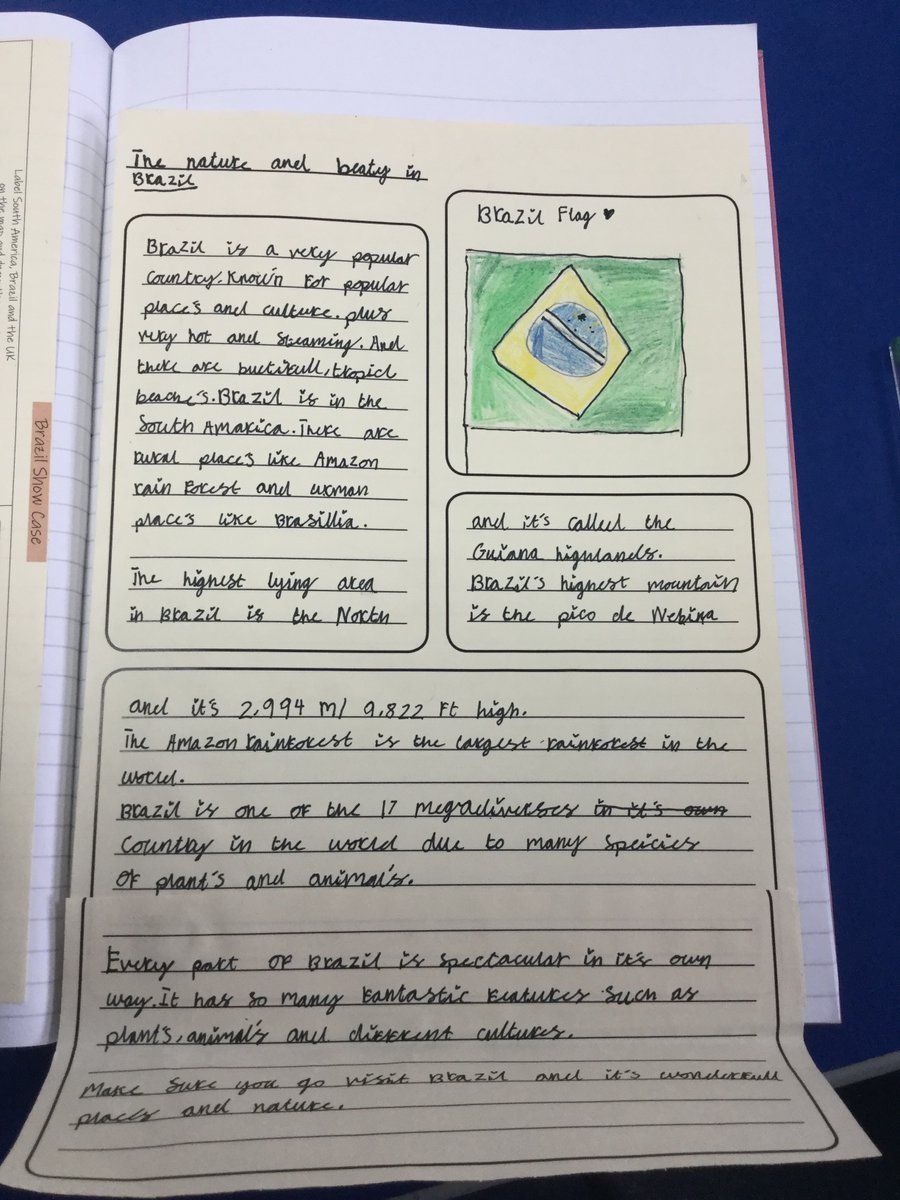 Label South America, Brazil and the UK
Brazil Show Case
The nature and beaty in
Brazil
Brazil is a very popular
country. Known for popular
place's and culture. plus
very hot and steaming. And
there are buetifull, tropicl
beache's. Brazil is in the
South Amarica. There are
rural places like Amazon
rain forest and urman
places like Brasillia.
The highest lying area
in Brazil is the North
Brazil Flag ♥
and it's called the
Guiana highlands.
Brazil's highest mountain
is the pico de Neblina
and it's 2,994 m/ 9,822 Ft high.
The Amazon rainforest is the largest rainforest in the
world.
Brazil is one of the 17 megadiverses in it's own
country in the world due to many speicies
of plant's and animal's.
Every part of Brazil is spectacular in it's own
way. It has so many fantastic features such as
plant's, animal's and different cultures.
Make sure you go visit Brazil and it's wonderfull
places and nature.